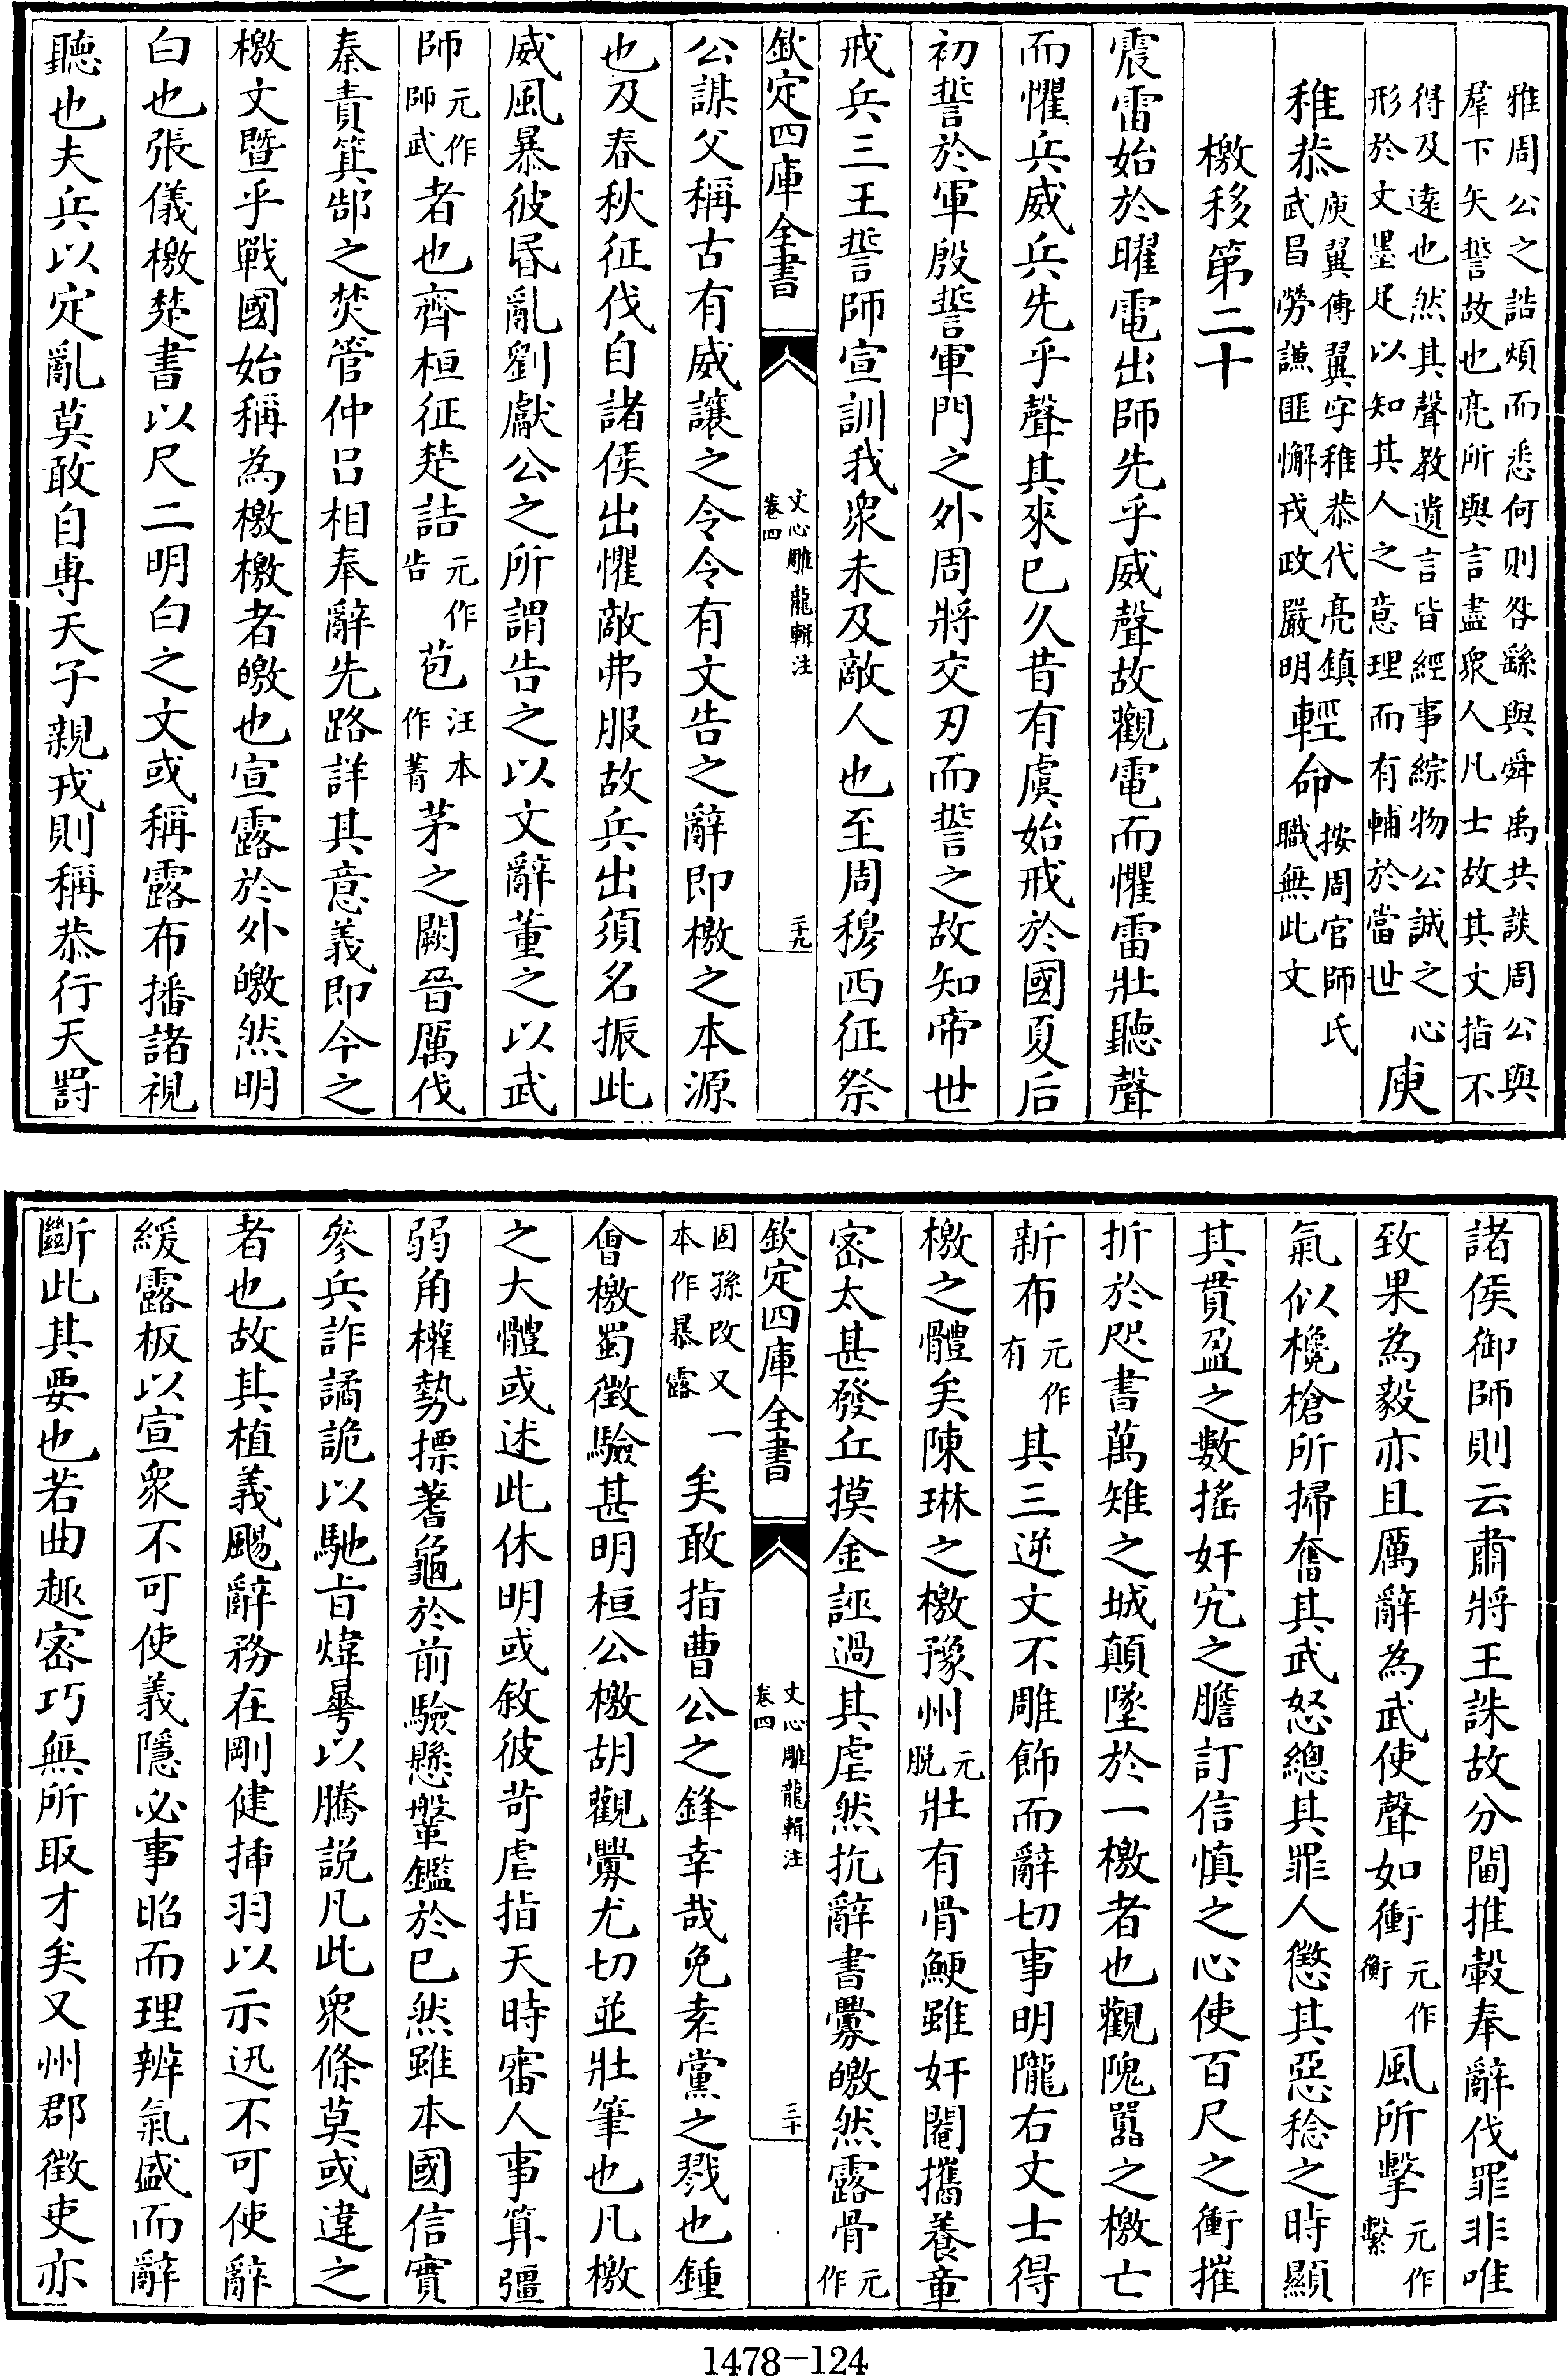 雅周公之誥煩而悉何則咎繇與舜禹共談周公與
羣下矢誓故也亮所與言盡衆人凡士故其文指不
得及遠也然其聲教遺言皆經事綜物公誠之心
形於文墨足以知其人之意理而有輔於當世
庾
稚恭
庾翼傳翼字稚恭代亮鎮
武昌勞謙匪懈戎政嚴明
輕命
按周官師氏
職無此文
檄移第二十
震雷始於曜電出師先乎威聲故觀電而懼雷壯聽聲
而懼兵威兵先乎聲其來已久昔有虞始戒於國夏后
初誓於軍殷誓軍門之外周將交刃而誓之故知帝世
戒兵三王誓師宣訓我衆未及敵人也至周穆西征祭
欽定四庫全書
文心雕龍輯注
卷四
二十九
公謀父稱古有威讓之令令有文告之辭即檄之本源
也及春秋征伐自諸侯出懼敵弗服故兵出須名振此
威風暴彼昬亂劉獻公之所謂告之以文辭董之以武
師
元作
師武
者也齊桓征楚詰
元作
告
苞
汪本
作菁
茅之闕晉厲伐
秦責箕郜之焚管仲呂相奉辭先路詳其意義即今之
檄文暨乎戰國始稱為檄檄者皦也宣露於外皦然明
白也張儀檄楚書以尺二明白之文或稱露布播諸視
聽也夫兵以定亂莫敢自專天子親戎則稱恭行天罸
諸侯御師則云肅將王誅故分閫推轂奉辭伐罪非唯
致果為毅亦且厲辭為武使聲如衝
元作
衡
風所擊
元作
繫
氣似欃槍所掃奮其武怒總其罪人懲其惡稔之時顯
其貫盈之數搖奸宄之膽訂信慎之心使百尺之衝摧
折於咫書萬雉之城顛墜於一檄者也觀隗囂之檄亡
新布
元作
有
其三逆文不雕飾而辭切事明隴右文士得
檄之體矣陳琳之檄豫州
元
脱
壯有骨鯁雖奸閹攜養章
密太甚發丘摸金誣過其虐然抗辭書釁皦然露骨
元
作
欽定四庫全書
文心雕龍輯注
卷四
三十
固孫改又一
本作暴露
矣敢指曹公之鋒幸哉免袁黨之戮也鍾
會檄蜀徵驗甚明桓公檄胡觀釁尤切並壯筆也凡檄
之大體或述此休明或敘彼苛虐指天時審人事算彊
弱角權勢摽蓍龜於前驗懸鞶鑑於已然雖本國信實
參兵詐譎詭以馳旨煒曅以騰説凡此衆條莫或違之
者也故其植義颺辭務在剛健揷羽以示迅不可使辭
緩露板以宣衆不可使義隱必事昭而理辨氣盛而辭
斷此其要也若曲趣密巧無所取才矣又州郡徵吏亦
1478-124